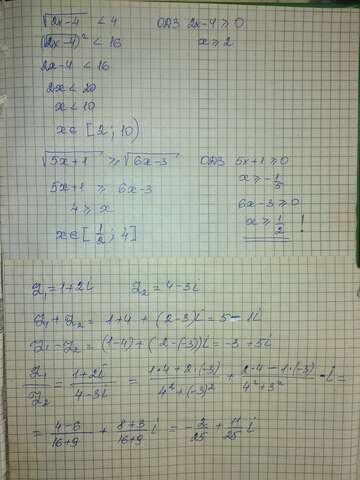 √2x-4 < 4 ОДЗ 2x-4 ≥ 0
(√2x-4)² < 16 x ≥ 2
2x-4 < 16
2x < 20
x < 10
x ∈ [2; 10)
√5x+1 ≥ √6x-3 ОДЗ 5x+1 ≥ 0
x ≥ -1/5
5x+1 ≥ 6x-3
6x-3 ≥ 0
4 ≥ x
x ≥ 1/2 !
x ∈ [1/2; 4]
Z₁ = 1+2i Z₂ = 4-3i
Z₁ + Z₂ = 1+4 + (2-3)i = 5-1i
Z₁ - Z₂ = (1-4) + (2-(-3))i = -3+5i
Z₁/Z₂ = 1+2i/4-3i = 1·4+2·(-3)/4²+(-3)² + 2·4-1·(-3)/4²+3² · i =
= 4-8/16+9 + 8+3/16+9 i = -2/25 + 11/25 i